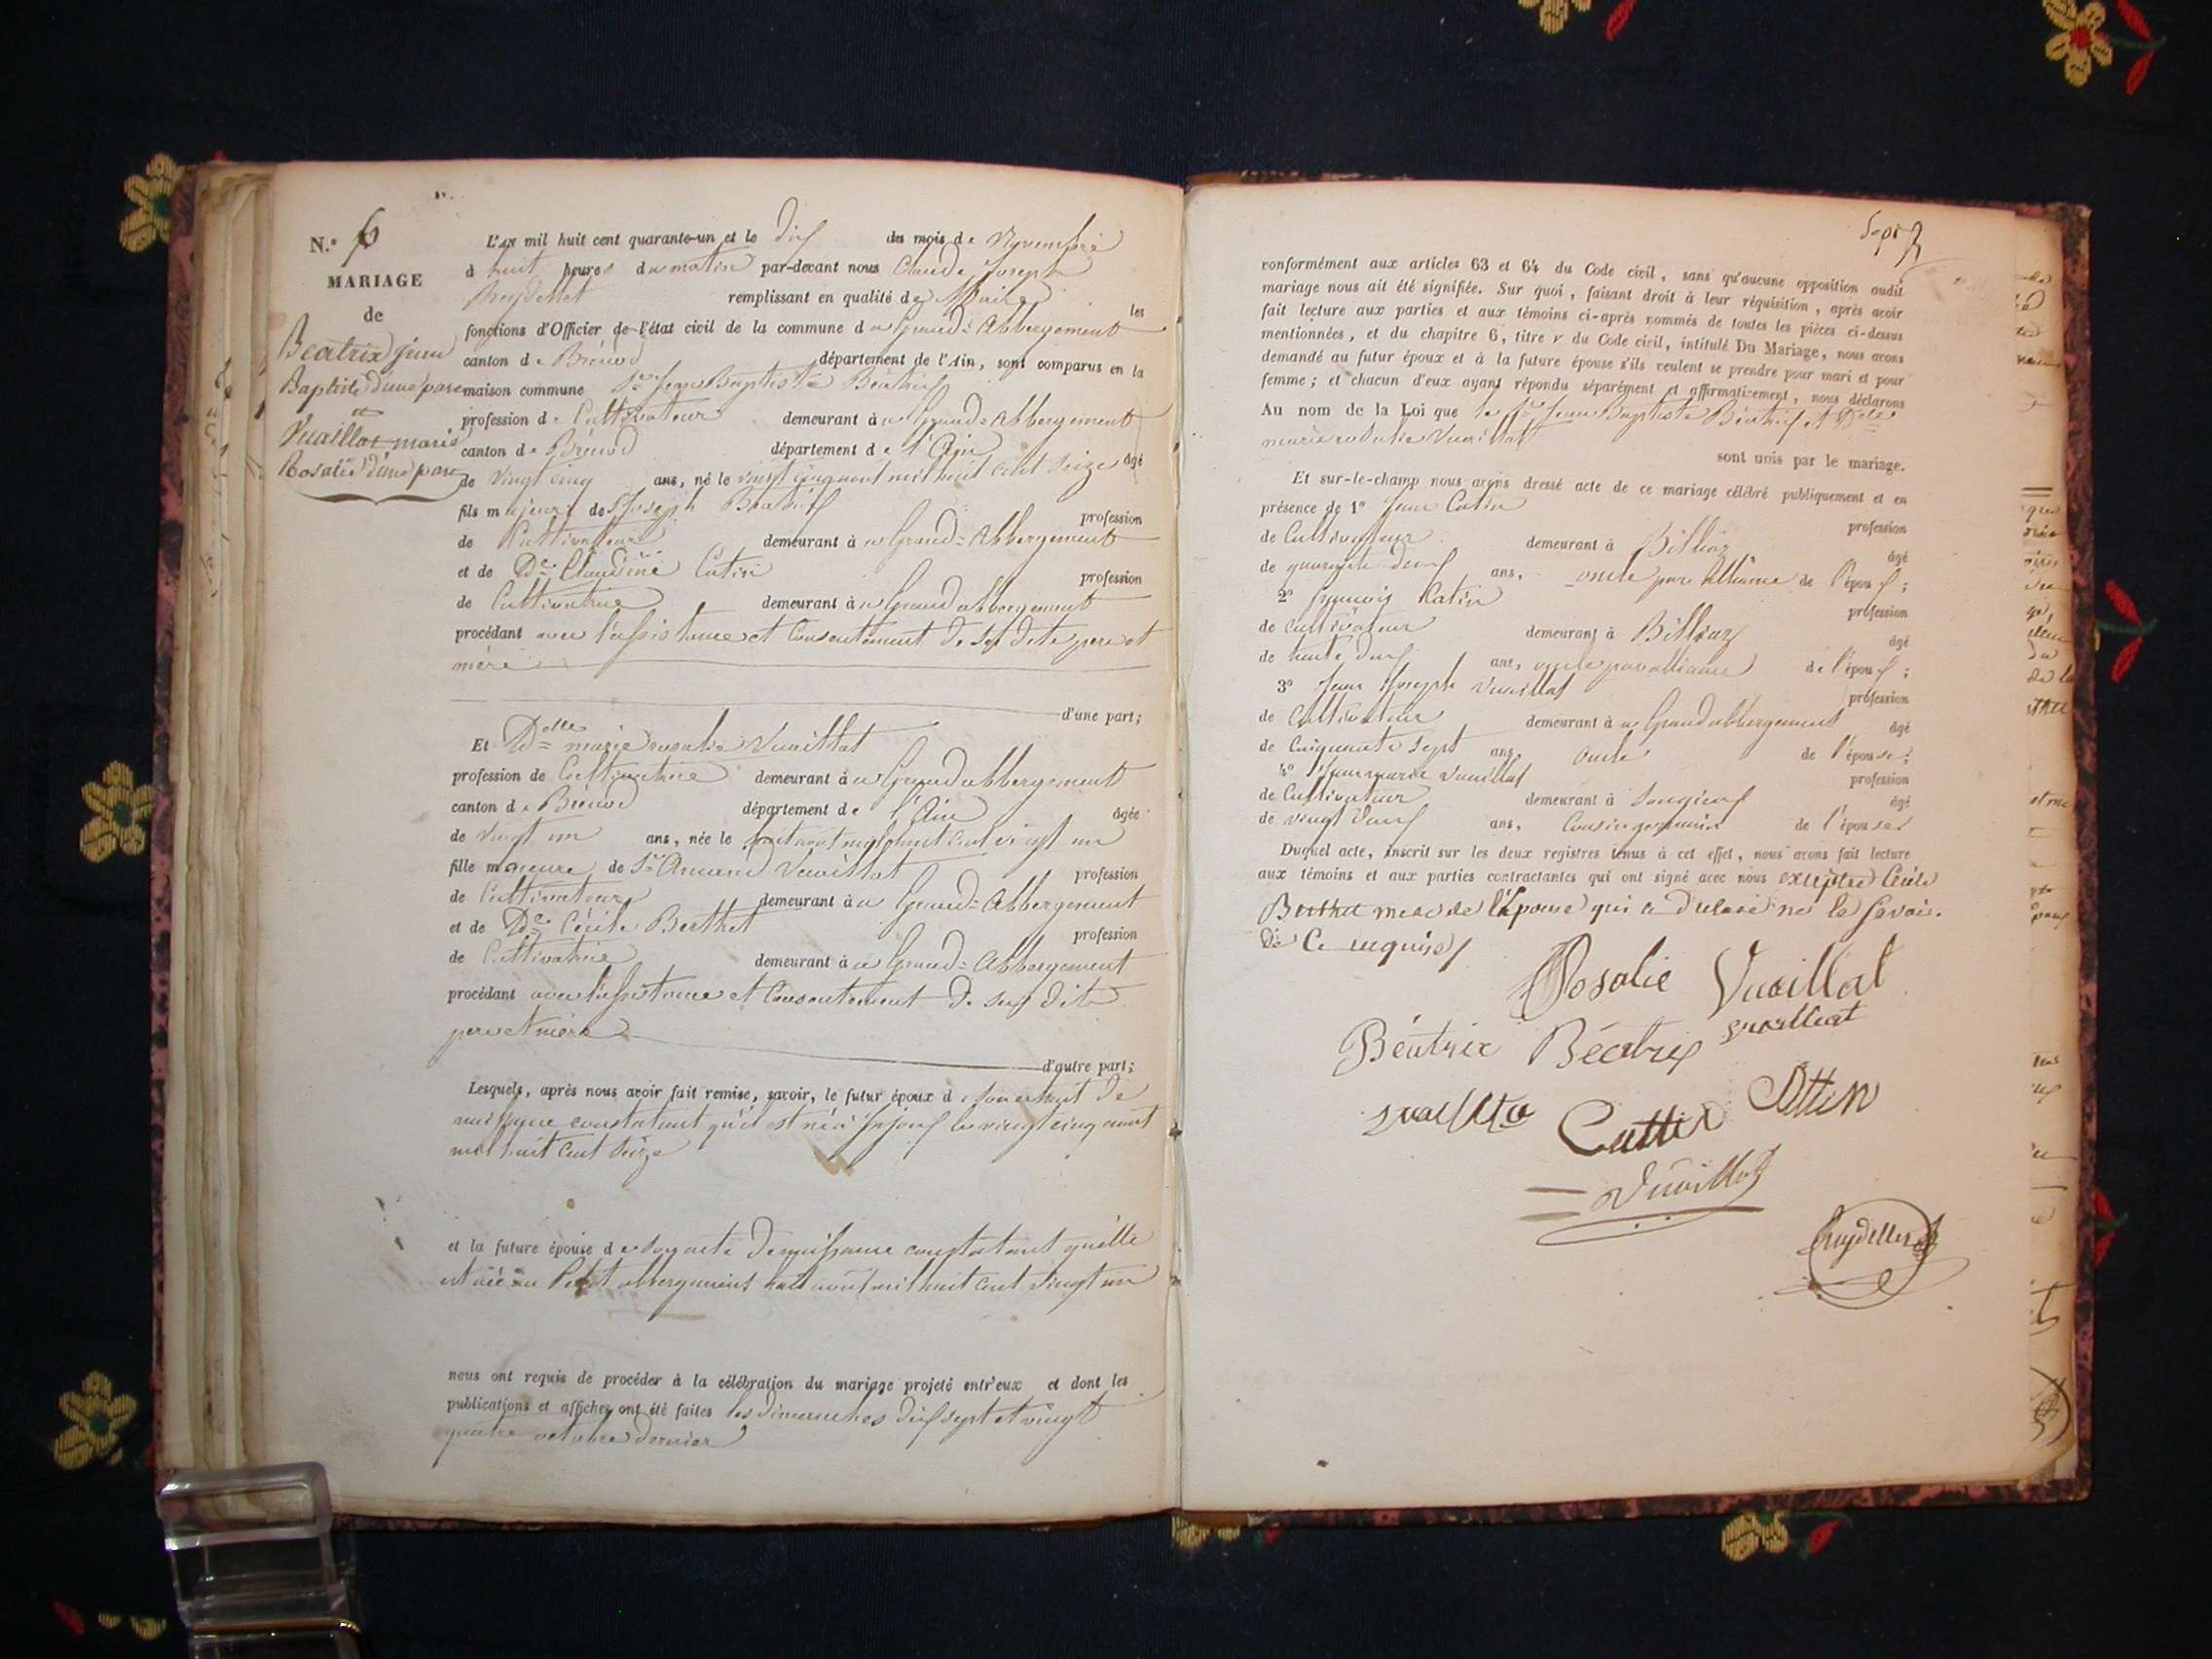 N.º 6
MARIAGE
de
Béatrix jean
Baptiste d'une part
et
Vuaillat marie
Rosalie d'une part
L'an mil huit cent quarante-un et le dix du mois de Novembre
à huit heures du matin par-devant nous Claude Joseph
remplissant en qualité de Maire les
fonctions d'Officier de l'état civil de la commune du Grand-Abbergement
canton de Brénod département de l'Ain, sont comparus en la
maison commune Sr Jean Baptiste Béatrix
profession de Cultivateur demeurant à u Grand-Abbergement
canton de Brénod département de l'Ain âgé
de vingt cinq ans, né le vingt cinq aout mil huit cent seize
fils majeur de Sr Joseph Béatrix profession
de Cultivateur demeurant à u Grand-Abbergement
et de De Claudine Cutin profession
de Cultivatrice demeurant à u Grand abbergement
procédant avec l'assistance et Consentement de ses dits pere et
mère
d'une part;
Et Delle marie rosalie Vuaillat
profession de Cultivatrice demeurant à u Grand abbergement
canton de Brénod département de l'Ain âgée
de vingt un ans, née le huit aout mil huit cent vingt un
fille mageure de Sr Amand Vuaillat profession
de Cultivateur demeurant à u Grand-Abbergement
et de De Cécile Berthet profession
de Cultivatrice demeurant à u Grand-Abbergement
procédant avec l'assistance et Consentement de ses dits
pere et mère
d'autre part;
Lesquels, après nous avoir fait remise, savoir, le futur époux de son extrait de
naissance constatant qu'il est né à le vingt cinq aout
mil huit cent seize
et la future épouse de son acte de naissance constatant qu'elle
est née au Petit abbergement huit aout mil huit cent vingt un
nous ont requis de procéder à la célébration du mariage projeté entr'eux et dont les
publications et affiches ont été faites les dimanches dix sept et vingt
quatre octobre dernier
Sept
conformément aux articles 63 et 64 du Code civil, sans qu'aucune opposition audit
mariage nous ait été signifiée. Sur quoi, faisant droit à leur réquisition, après avoir
fait lecture aux parties et aux témoins ci-après nommés de toutes les pièces ci-dessus
mentionnées, et du chapitre 6, titre v du Code civil, intitulé Du Mariage, nous avons
demandé au futur époux et à la future épouse s'ils veulent se prendre pour mari et pour
femme; et chacun d'eux ayant répondu séparément et affirmativement, nous déclarons
Au nom de la Loi que le Sr Jean Baptiste Béatrix et Delle
marie rosalie Vuaillat
sont unis par le mariage.
Et sur-le-champ nous avons dressé acte de ce mariage célébré publiquement et en
présence de 1º Jean Cutin profession
de Cultivateur demeurant à âgé
de quarante deux ans, oncle par alliance de l'époux;
2º françois Cutin profession
de cultivateur demeurant à âgé
de trente deux ans, oncle par alliance de l'époux;
3º Jean Joseph Vuaillat profession
de Cultivateur demeurant à u Grand abbergement âgé
de Cinquante Sept ans, oncle de l'épouse;
4º Jean marie Vuaillat profession
de Cultivateur demeurant à Songieux âgé
de vingt deux ans, Cousin germain de l'épouse
Duquel acte, inscrit sur les deux registres tenus à cet effet, nous avons fait lecture
aux témoins et aux parties contractantes qui ont signé avec nous exceptée Cécile
Berthet mere de l'Épouse qui a déclaré ne le savoir.
de Ce requise/
Rosalie Vuaillat
Béatrix Béatrix vuaillat
Cuttin Cuttin
Vuaillat